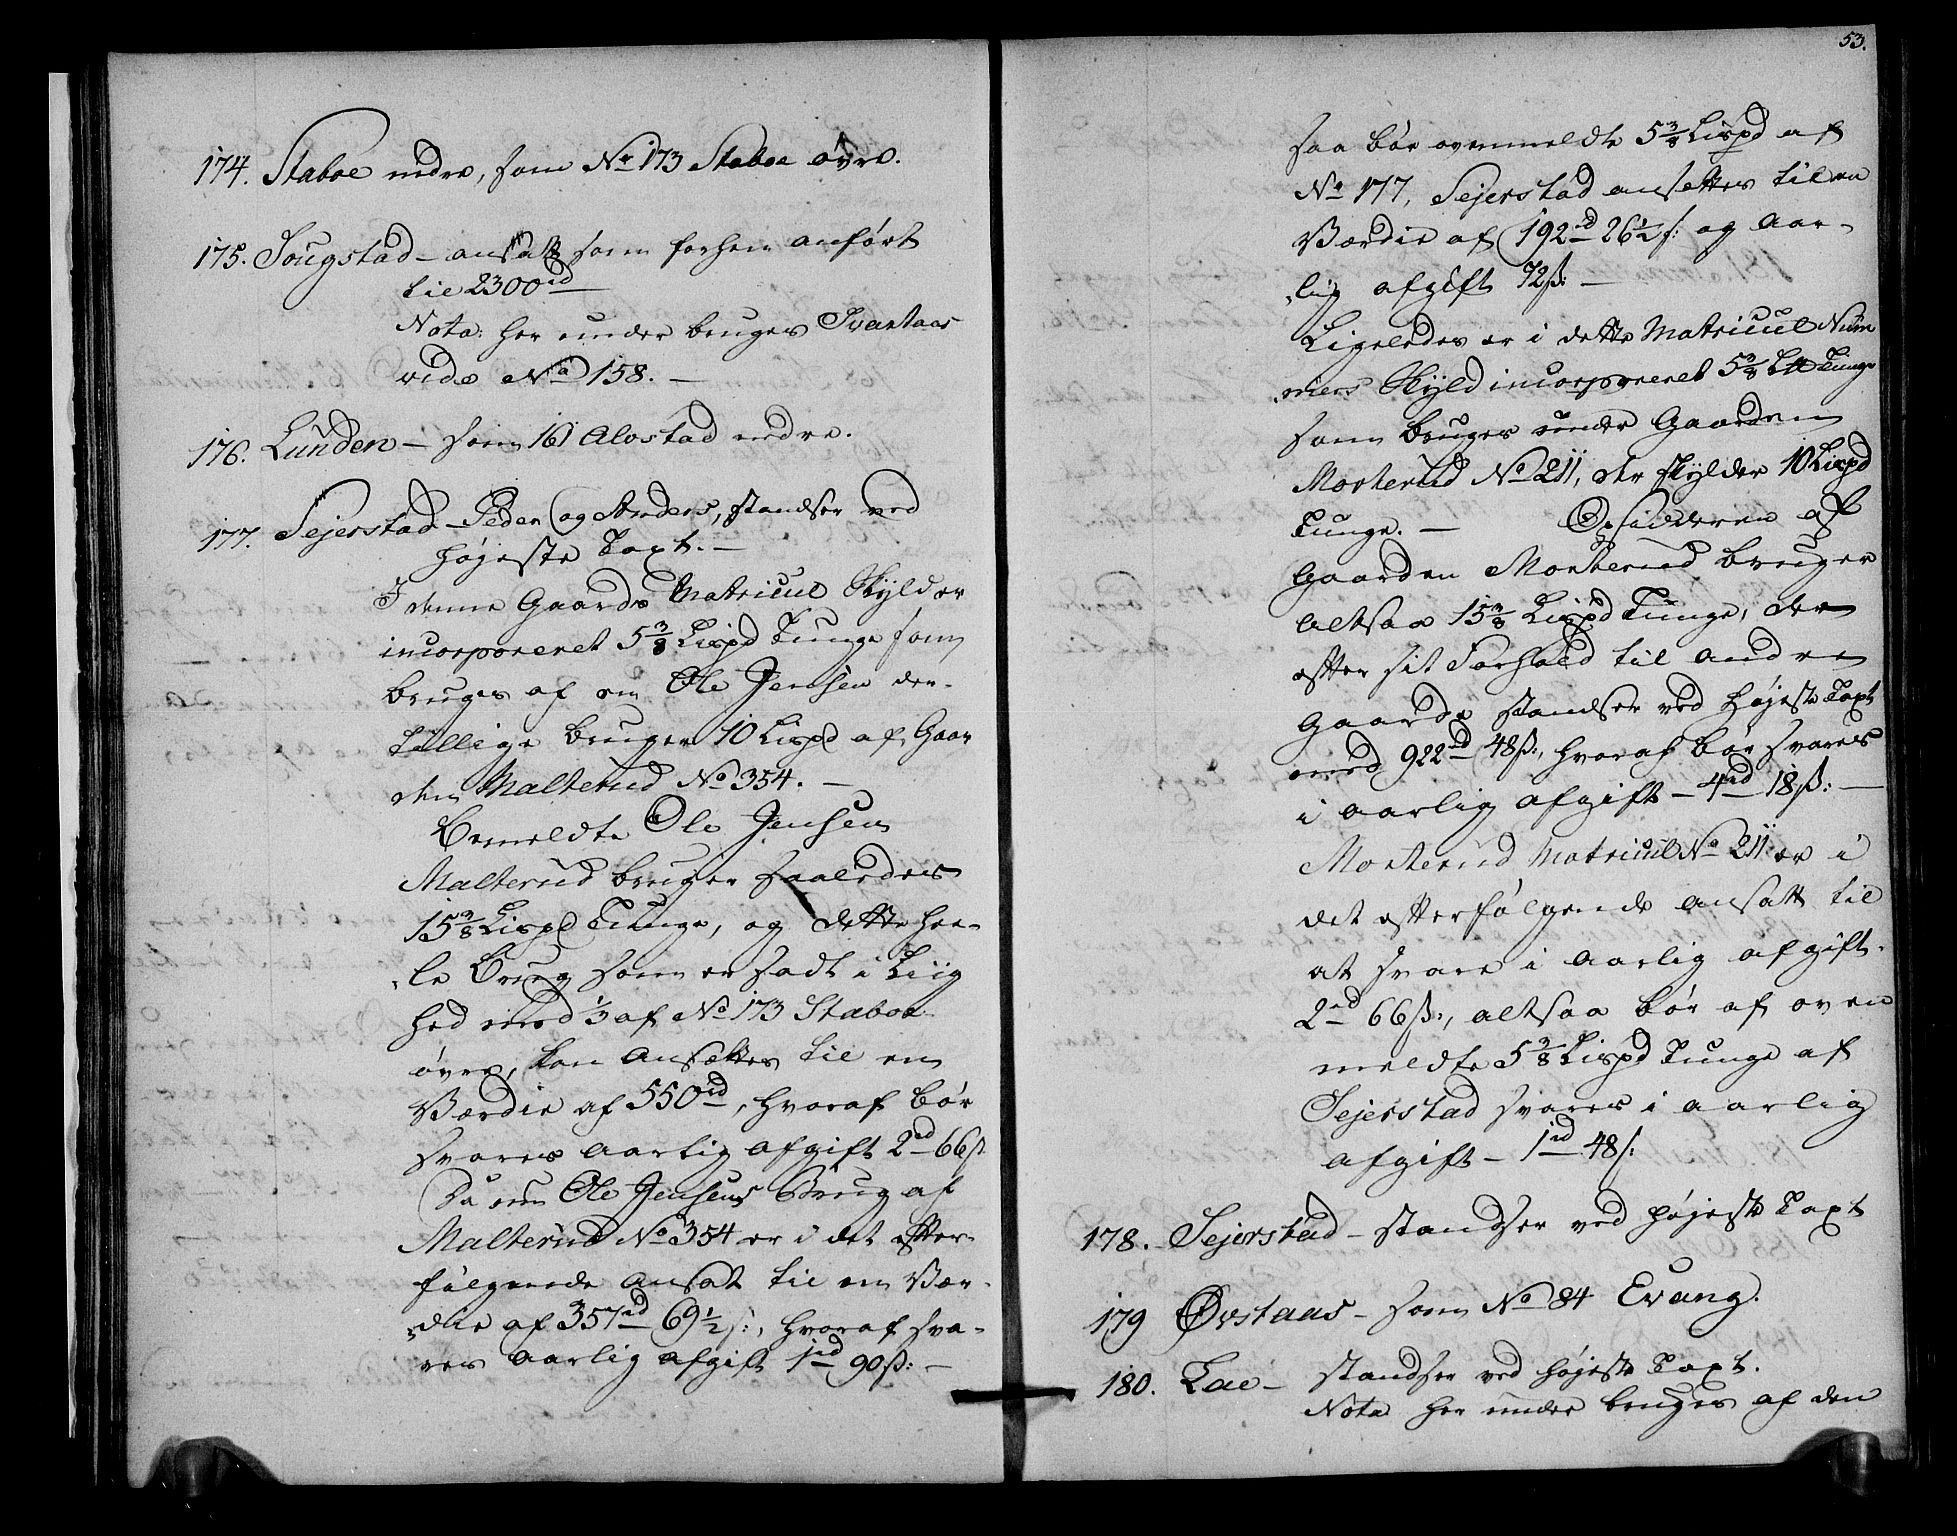 174. Staboe nedre, som No 173 Staboe øvre.
175. Sougstad – ansatt som forhen anført
til 2300 rd
Nota. her under bruges Svartaas
vide No 158. –
176. Lunden – som 161 Alostad nedre.
177. Sejerstad – Peder og Anders, standser ved
højeste Taxt. –
I denne Gaards Matricul Skyld er
incorporeret 5 3/8 Lispd Tunge som
bruges af en Ole Jensen der-
tillige bruger 10 Lispd af Gaar
den Malterud No 354. –
Bemeldte Ole Jensen
Malterud bruger saaledes
15 3/8 Lispd Tunge, og dette hee-
le Brug som er sadt i Liig
hed med 1/3 af No 173 Staboe
øvre, kan ansættes til en
Værdie af 550 rd, hvoraf bør
svares aarlig afgift 2 rd 66 ß
Da nu Ole Jensens Brug af
Malterud No 354 er i det efter-
følgende ansat til en Vær-
die af 357 rd 69 1/2 ß:, hvoraf sva-
res aarlig afgift 1 rd 90 ß: –
53.
saa bør ovenmeldte 5 3/8 Lispd af
No 177, Sejerstad ansættes til en
Værdie af 192 rd 26 1/2 ß: og aar-
lig afgift 72 ß: –
Ligeledes er i dette Matricul Num
mers Skyld incorporeret 5 3/8 L℔ Tunge
som bruges under Gaarden
Morterud No 211, der skylder 10 Lispd
Tunge. – Opsidderen af
Gaarden Morterud bruger
altsaa 15 3/8 Lispd Tunge, der
efter sit Forhold til andre
Gaarde standser ved højeste Taxt
med 922 rd 48 ß:, hvoraf bør svares
i aarlig afgift – 4 rd 18 ß: –
Morterud Matricul No 211 er i
det efterfølgende ansatt til
at svare i aarlig afgift
2 rd 66 ß:, altsaa bør af oven
meldte 5 3/8 Lispd Tunge af
Sejerstad svares i aarlig
afgift – 1 rd 48 ß:
178. Sejerstad – standser ved højeste Taxt
179 Øvstaas – som No 84 Evang.
180. Lae – standser ved højeste Taxt.
Nota her under bruges af den